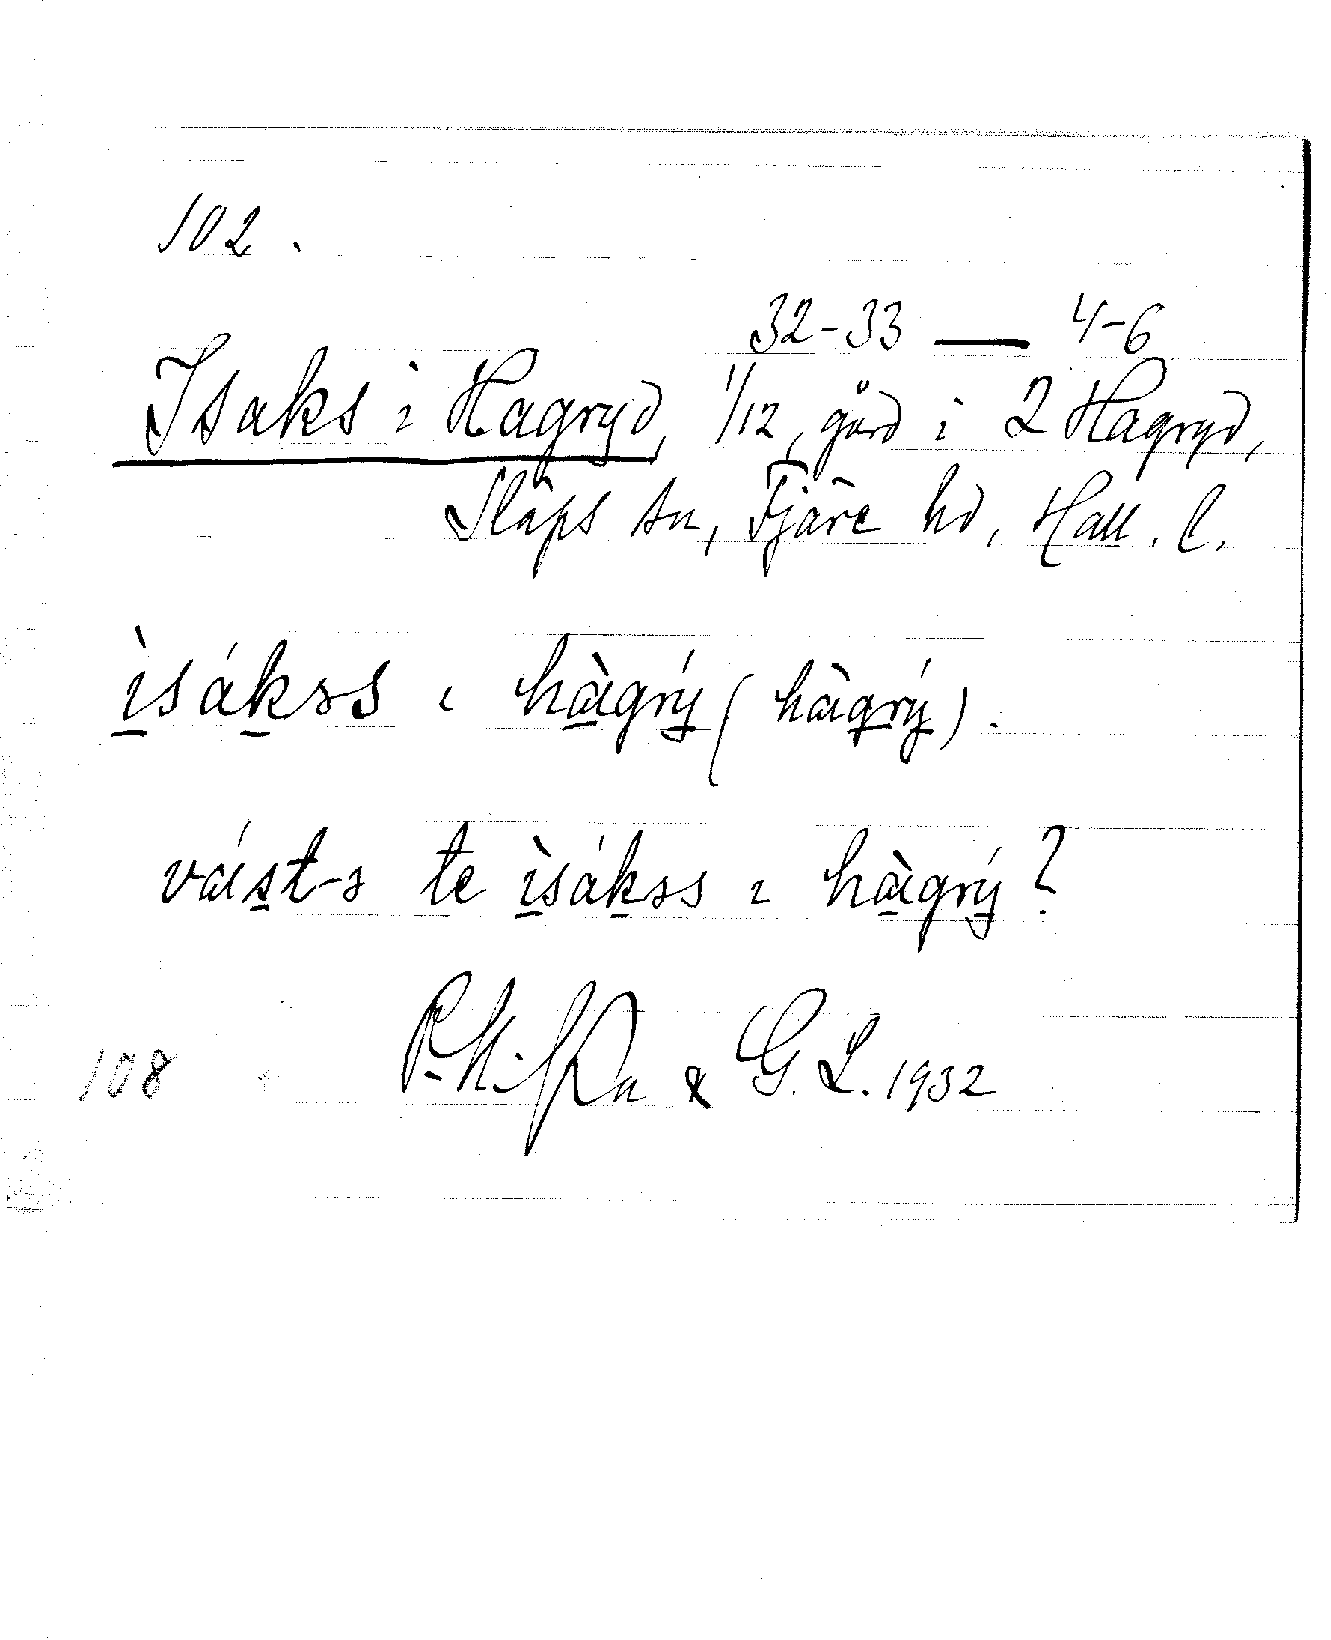 102.
32-33 — 4-6
Isaks i Hagryd, 1/12 gård i 2 Hagryd,
Släps sn, Fjäre hd, Hall. l.
ìsákss ı hàgrý (hàgrý).
te ìsákss ı hàgrý?
& G. L. 1932
108